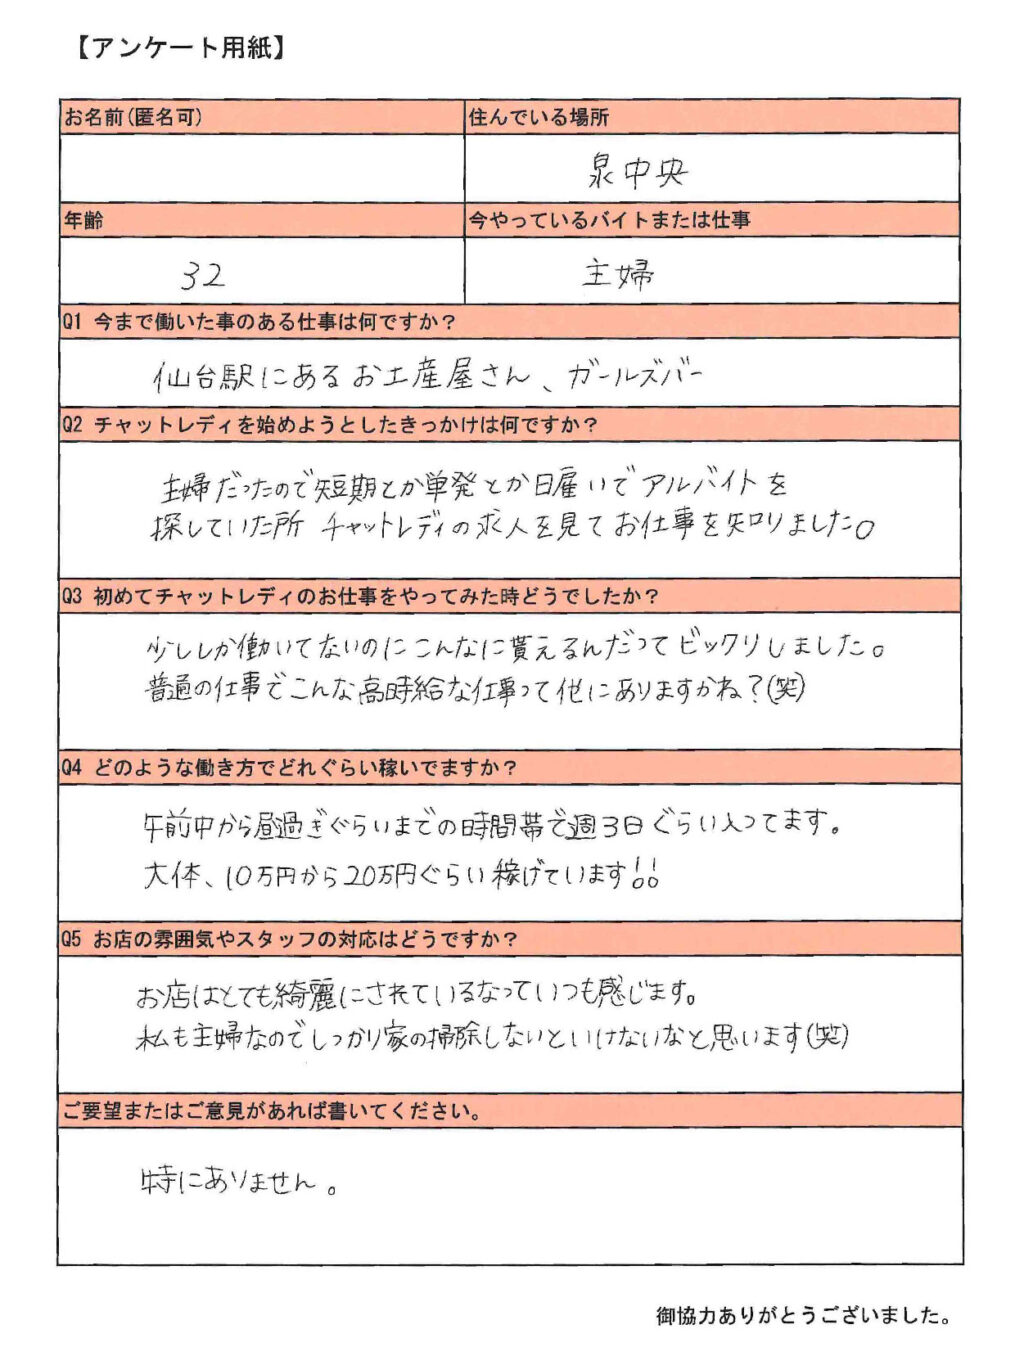 【アンケート用紙】
お名前(匿名可) 住んでいる場所
泉中央
年齢 今やっているバイトまたは仕事
32 主婦
Q1 今まで働いた事のある仕事は何ですか？
仙台駅にあるお土産屋さん、ガールズバー
Q2 チャットレディを始めようとしたきっかけは何ですか？
主婦だったので短期とか単発とか日雇いでアルバイトを
探していた所 チャットレディの求人を見てお仕事を知りました。
Q3 初めてチャットレディのお仕事をやってみた時どうでしたか？
少ししか働いてないのにこんなに貰えるんだってビックリしました。
普通の仕事でこんな高時給な仕事って他にありますかね？(笑)
Q4 どのような働き方でどれぐらい稼いでますか？
午前中から昼過ぎぐらいまでの時間帯で週3日ぐらい入ってます。
大体、10万円から20万円ぐらい稼げています!!
Q5 お店の雰囲気やスタッフの対応はどうですか？
お店はとても綺麗にされているなっていつも感じます。
私も主婦なのでしっかり家の掃除しないといけないなと思います(笑)
ご要望またはご意見があれば書いてください。
特にありません。
御協力ありがとうございました。